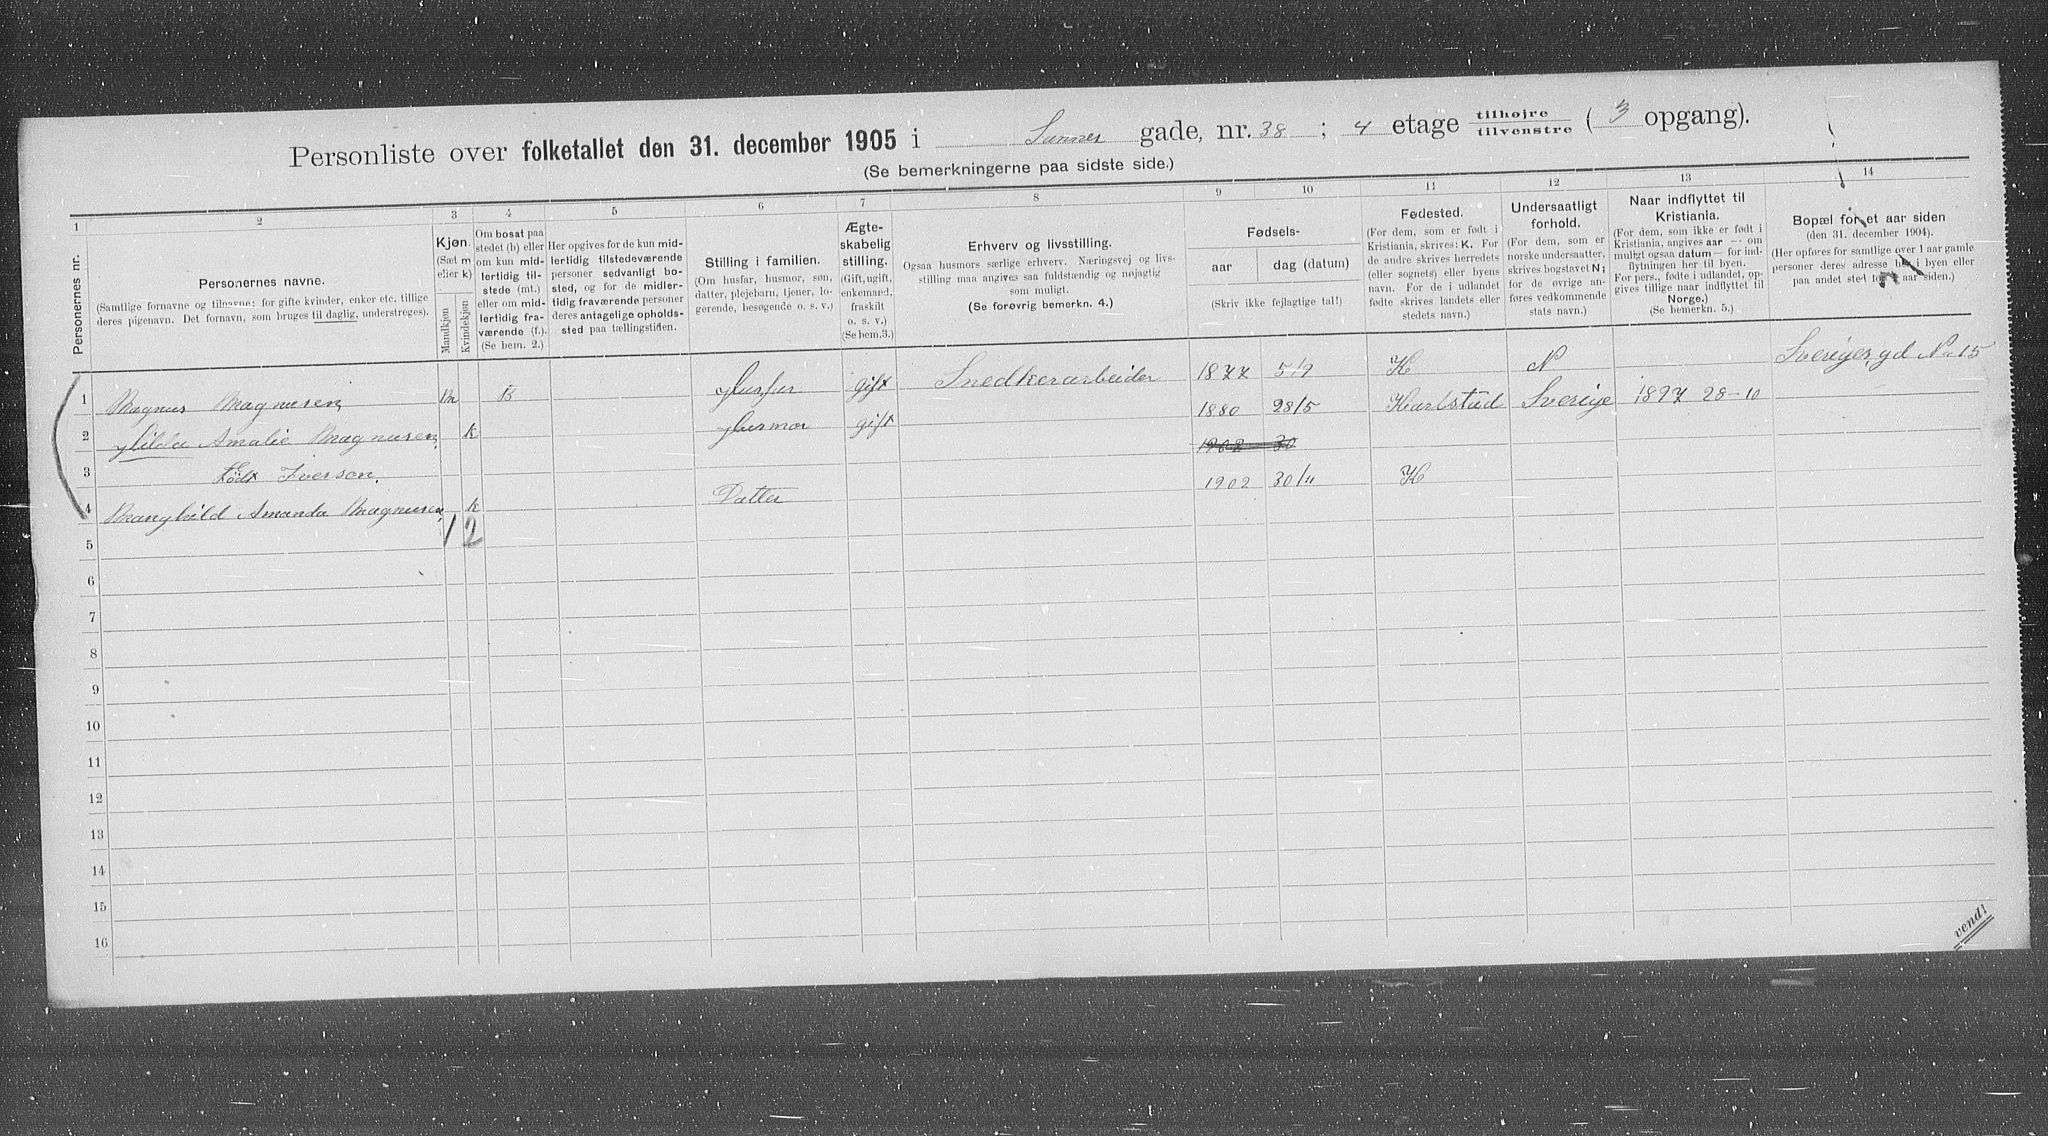 Personliste over folketallet den 31. december 1905 i Sanner gade, nr. 38 ; 4 etage tilhøjre tilvenstre ( 3 opgang).
(Se bemerkningerne paa sidste side.)
1 2 3 4 5 6 7 8 9 10 11 12 13 14
Personernes nr.
Personernes navne.
(Samtlige fornavne og tilnavne; for gifte kvinder, enker etc. tillige
deres pigenavn. Det fornavn, som bruges til daglig, understreges).
Kjøn.
(Sæt m
eller k)
Mandkjøn
Kvindekjøn
Om bosat paa
stedet (b) eller
om kun mid-
lertidig til-
stede (mt.)
eller om mid-
lertidig fra-
værende (f.).
(Se bem. 2.)
Her opgives for de kun mid-
lertidig tilstedeværende
personer sedvanligt bo-
sted, og for de midler-
tidig fraværende personer
deres antagelige opholds-
sted paa tællingstiden.
Stilling i familien.
(Om husfar, husmor, søn,
datter, plejebarn, tjener, lo-
gerende, besøgende o. s. v.)
Ægte-
skabelig
stilling.
(Gift, ugift,
enkemand,
fraskilt
o. s. v.)
(Se bem. 3.)
Erhverv og livsstilling.
Ogsaa husmors særlige erhverv. Næringsvej og livs-
stilling maa angives saa fuldstændig og nøjagtig
som muligt.
(Se forøvrig bemerkn. 4.)
Fødsels-
aar dag (datum)
(Skriv ikke fejlagtige tal!)
Fødested.
(For dem, som er født i
Kristiania, skrives: K. For
de andre skrives herredets
(eller sognets) eller byens
navn. For de i udlandet
fødte skrives landets eller
stedets navn.)
Undersaatligt
forhold.
(For dem, som er
norske undersaatter,
skrives bogstavet N;
for de øvrige an-
føres vedkommende
stats navn.)
Naar indflyttet til
Kristiania.
(For dem, som ikke er født i
Kristiania, angives aar — om
muligt ogsaa datum — for ind-
flytningen her til byen.
For pers., fødte i udlandet, op-
gives tillige naar indflyttet til
Norge.)
(Se bemerkn. 5.)
Bopæl for et aar siden
(den 31. december 1904).
(Her opføres for samtlige over 1 aar gamle
personer deres adresse her i byen eller
paa andet sted for et aar siden.)
1 Magnus Magnusen m B Husfar gift Snedkerarbeider 1877 5/9 K N Sveriges gd No 15
2 Hilda Amalie Magnusen, k Husmor gift 1880 28/5 Karlstad Sverige 1897 28-10
3 født Iversen. 1902 30
4 Manghild Amanda Magnusen, k Datter 1902 30/11 K
1 2
5
6
7
8
9
10
11
12
13
14
15
16
vend!